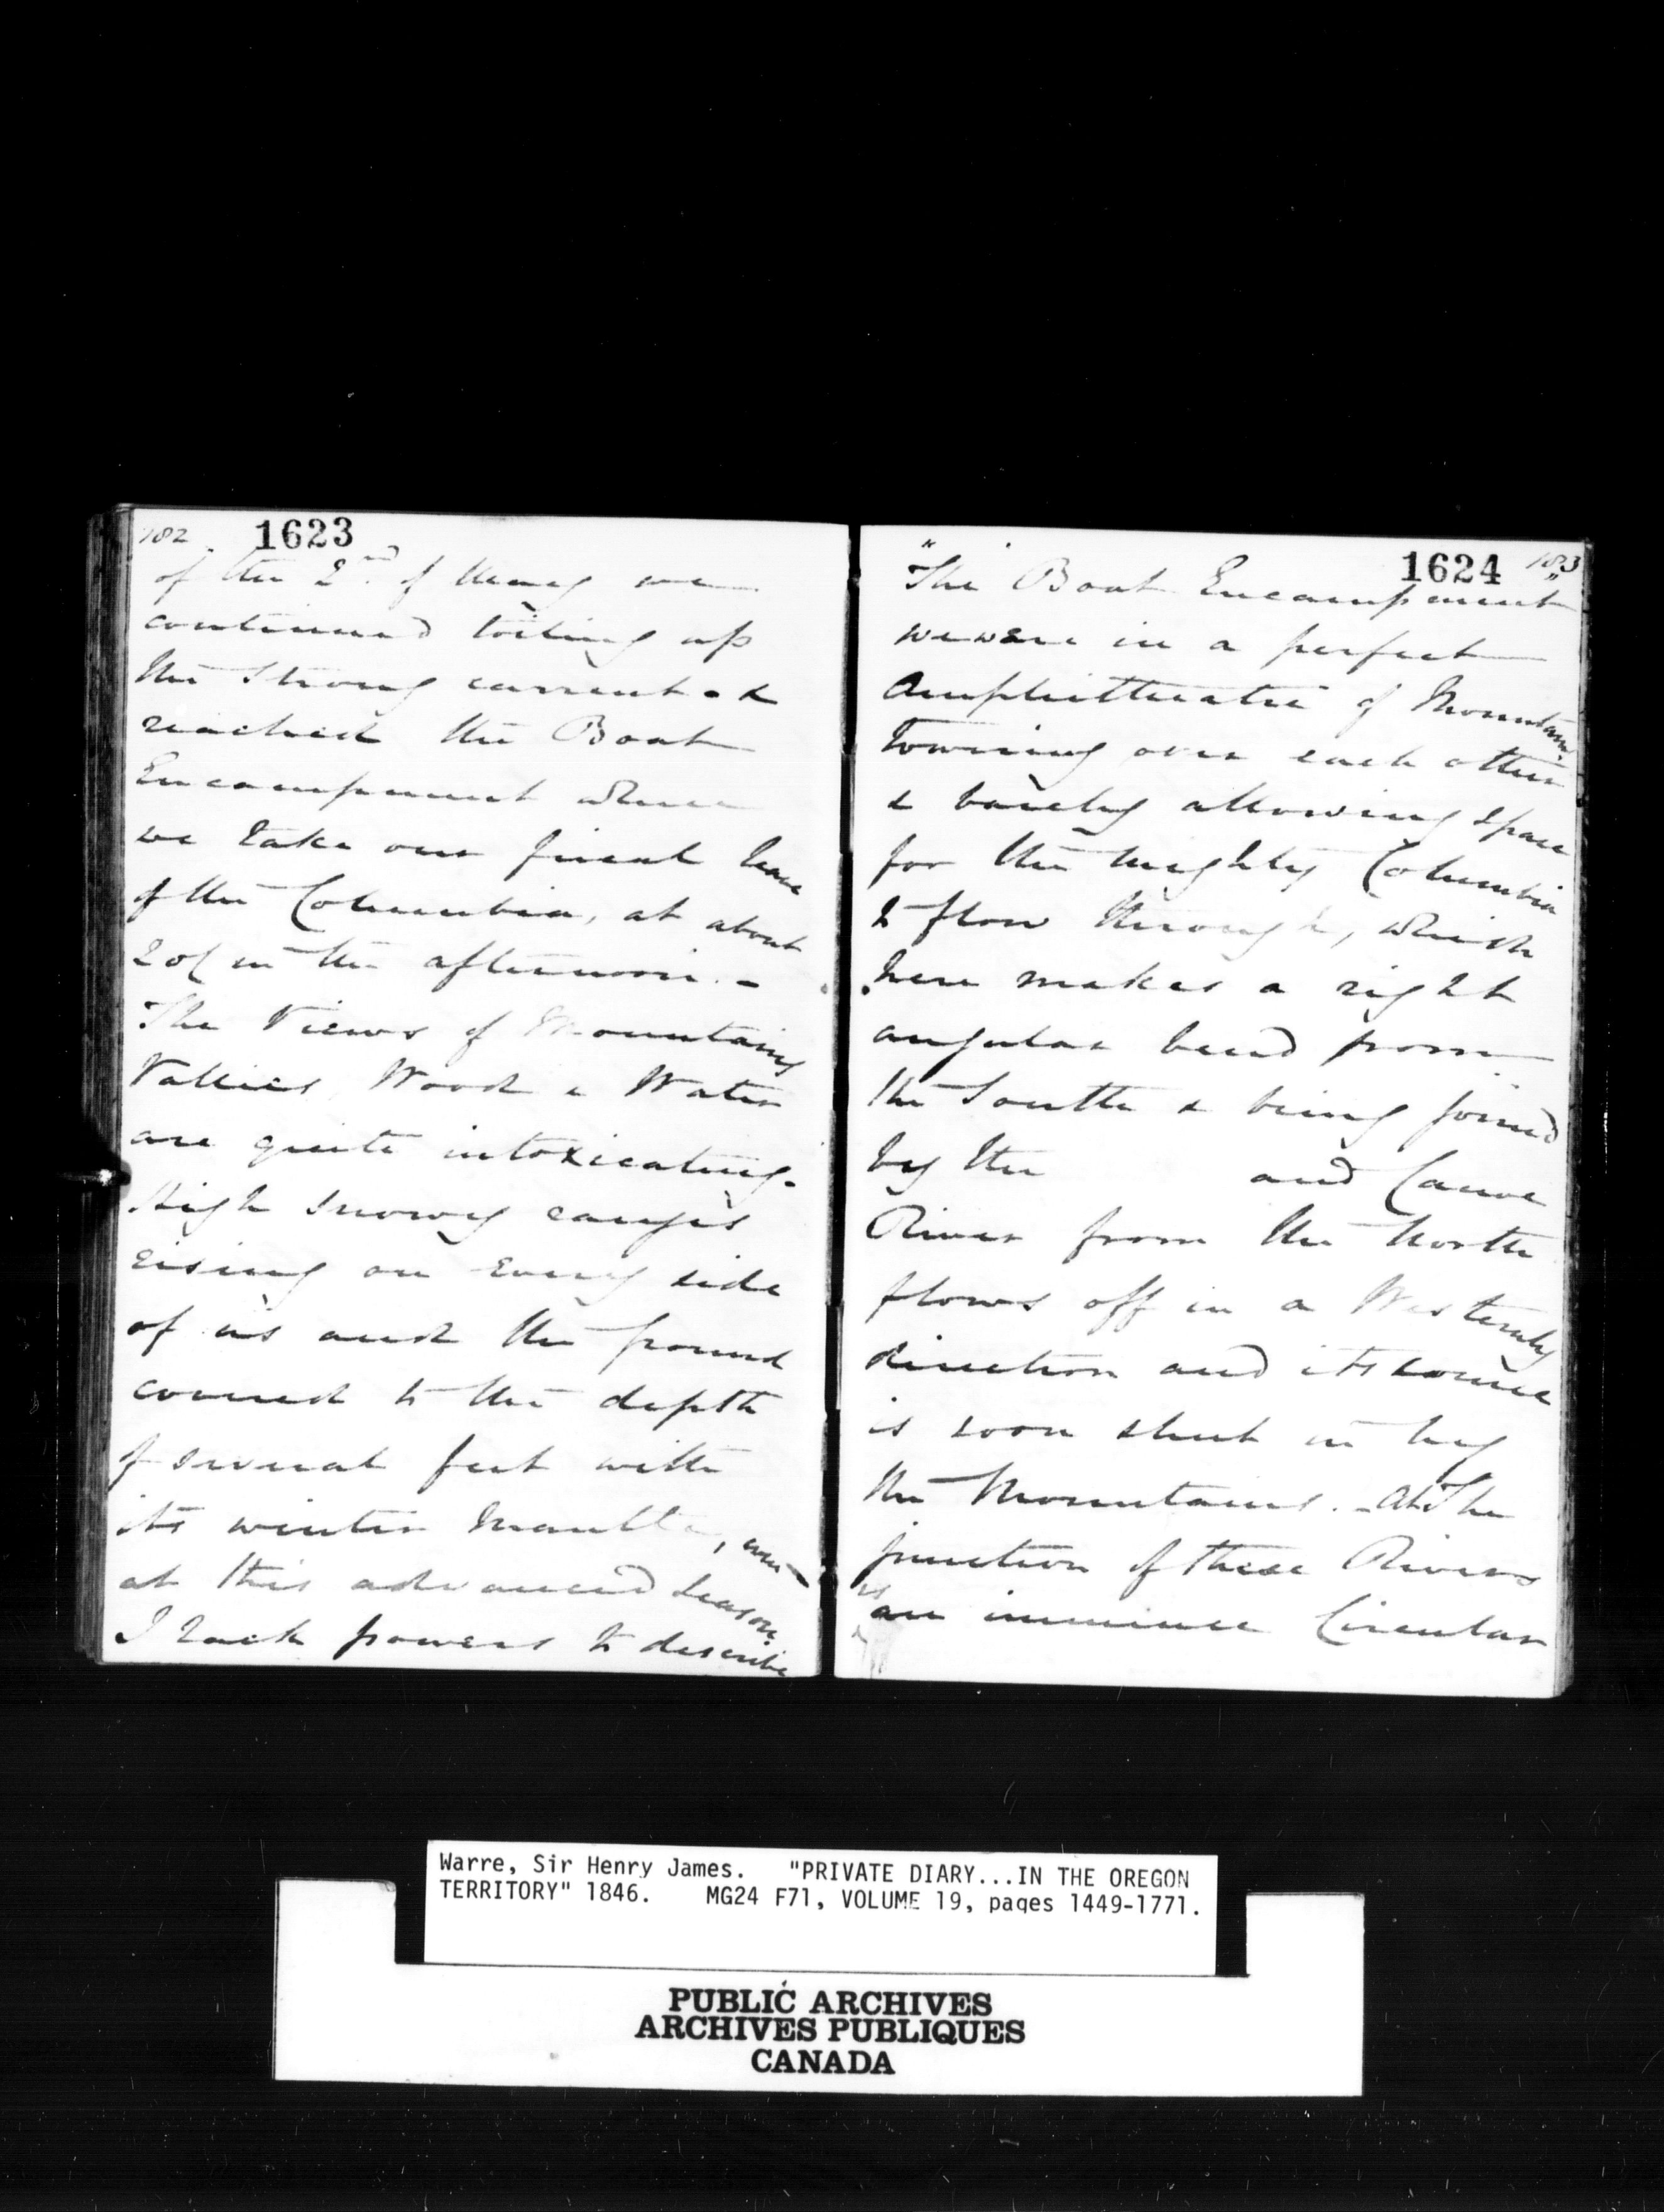 182 1623
of the 2nd. of May we
continued toiling up
the Strong current - &
reached the Boat
Encampment where
we take our final leave
of the Columbia, at about
2 o( in the afternoon. -
The Views of Mountains
Vallies, Wood & Water
are quite intoxicating.
High Snowy ranges
rising on every side
of us and the ground
covered to the depth
of several feet with
its winter mantle, even
at this advanced season.
I lack powers to describe
1624 183
"The Boat Encampment"
we were in a perfect
Amphitheatre of Mountains
towering over each other
& barely allowing space
for the mighty Columbia
to flow through, which
here makes a right
angular bend from
the South & being joined
by the and Canoe
River from the North
flows off in a Westerly
direction and its course
is soon shut in by
the Mountains. - At The
junction of these Rivers
is
an immense Circular
Warre, Sir Henry James. "PRIVATE DIARY...IN THE OREGON
TERRITORY" 1846. MG24 F71, VOLUME 19, pages 1449-1771.
PUBLIC ARCHIVES
ARCHIVES PUBLIQUES
CANADA